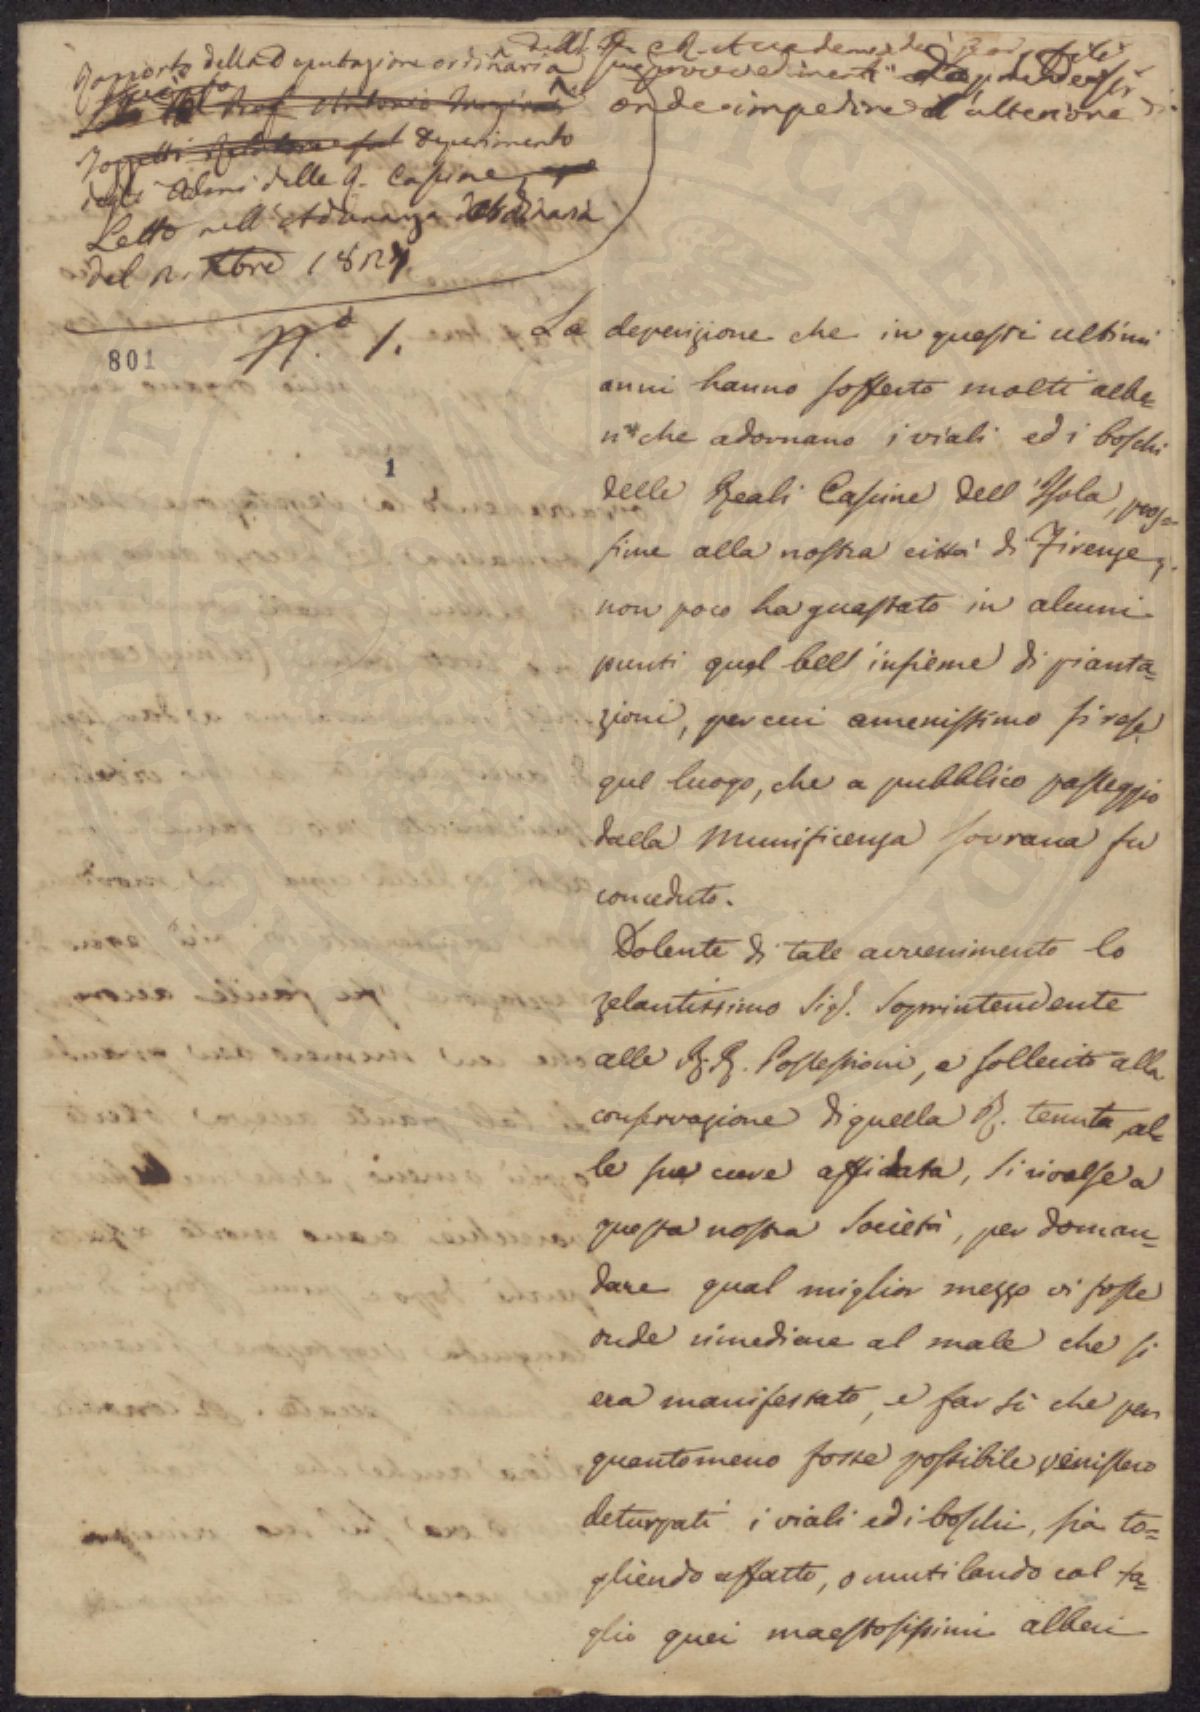 Rapporto della Deputazione ordinaria della R. Accademia dei Georgofili
sui provvedimenti da prendersi
onde impedire l'ulteriore
Prof. Antonio
deperimento
degli Olmi delle R. Cascine
Letto nell'Adunanza ordinaria
del 2. 1827
N.° 1.
801
1
La deperizione che in questi ultimi
anni hanno sofferto molti albe=
ri che adornano i viali ed i boschi
delle Reali Cascine dell'Isola, pros=
sime alla nostra città di Firenze,
non poco ha guastato in alcuni
punti quel bell'insieme di pianta=
zioni, per cui amenissimo si rese
quel luogo, che a pubblico passeggio
dalla Munificenza Sovrana fu
conceduto.
Dolente di tale avvenimento lo
zelantissimo Sig. Soprintendente
alle R. R. Possessioni, e sollecito alla
conservazione di quella R. tenuta, al=
le sue cure affidata, si rivolse a
questa nostra Società, per doman=
dare qual miglior mezzo vi fosse
onde rimediare al male che si
era manifestato, e far sì che per
quantomeno fosse possibile venissero
deturpati i viali ed i boschi, sia to=
gliendo affatto, o mutilando col ta=
glio quei maestosissimi alberi